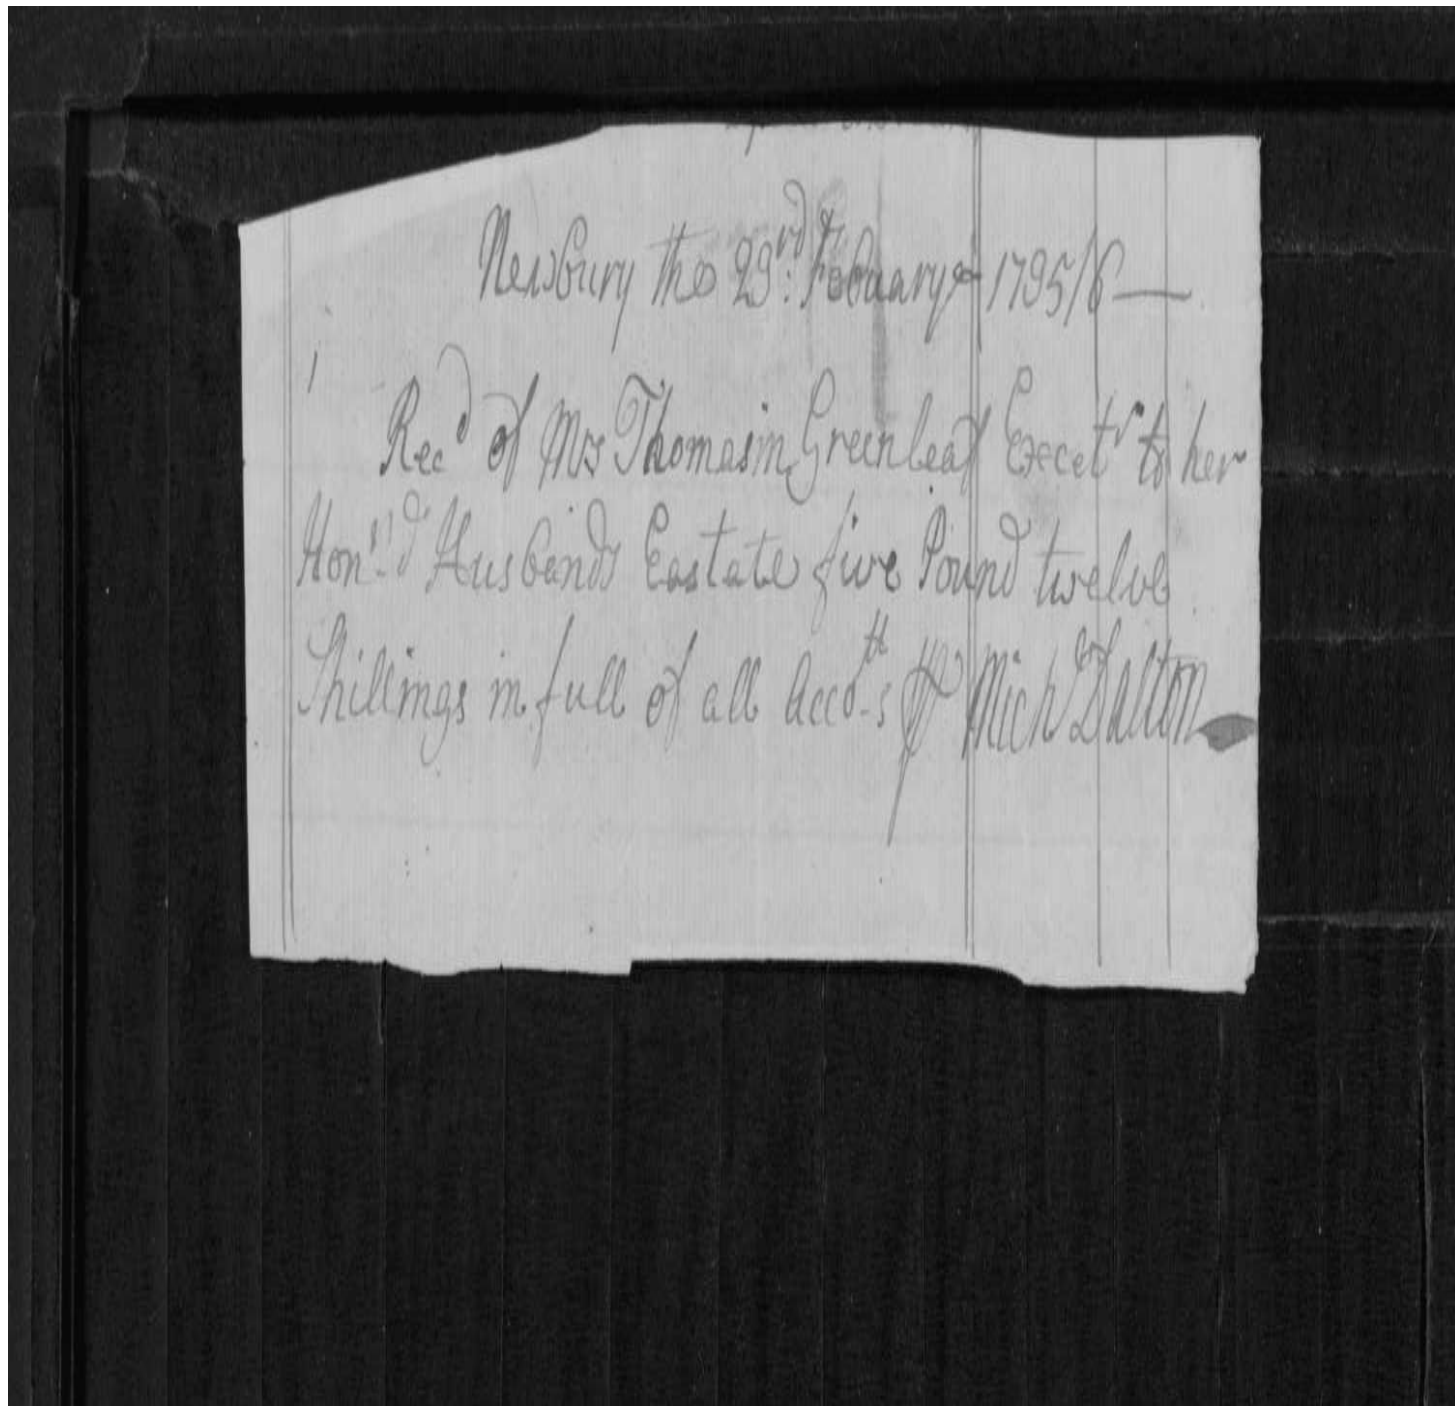 Newsbury the 23rd. Febuary 1735/6
Recd of Mrs Thomasin Greenleaf Execetr to her
Honrd Husbands Eastate five Pound twelve
Shillings in full of all Acco-s Michll Dalton